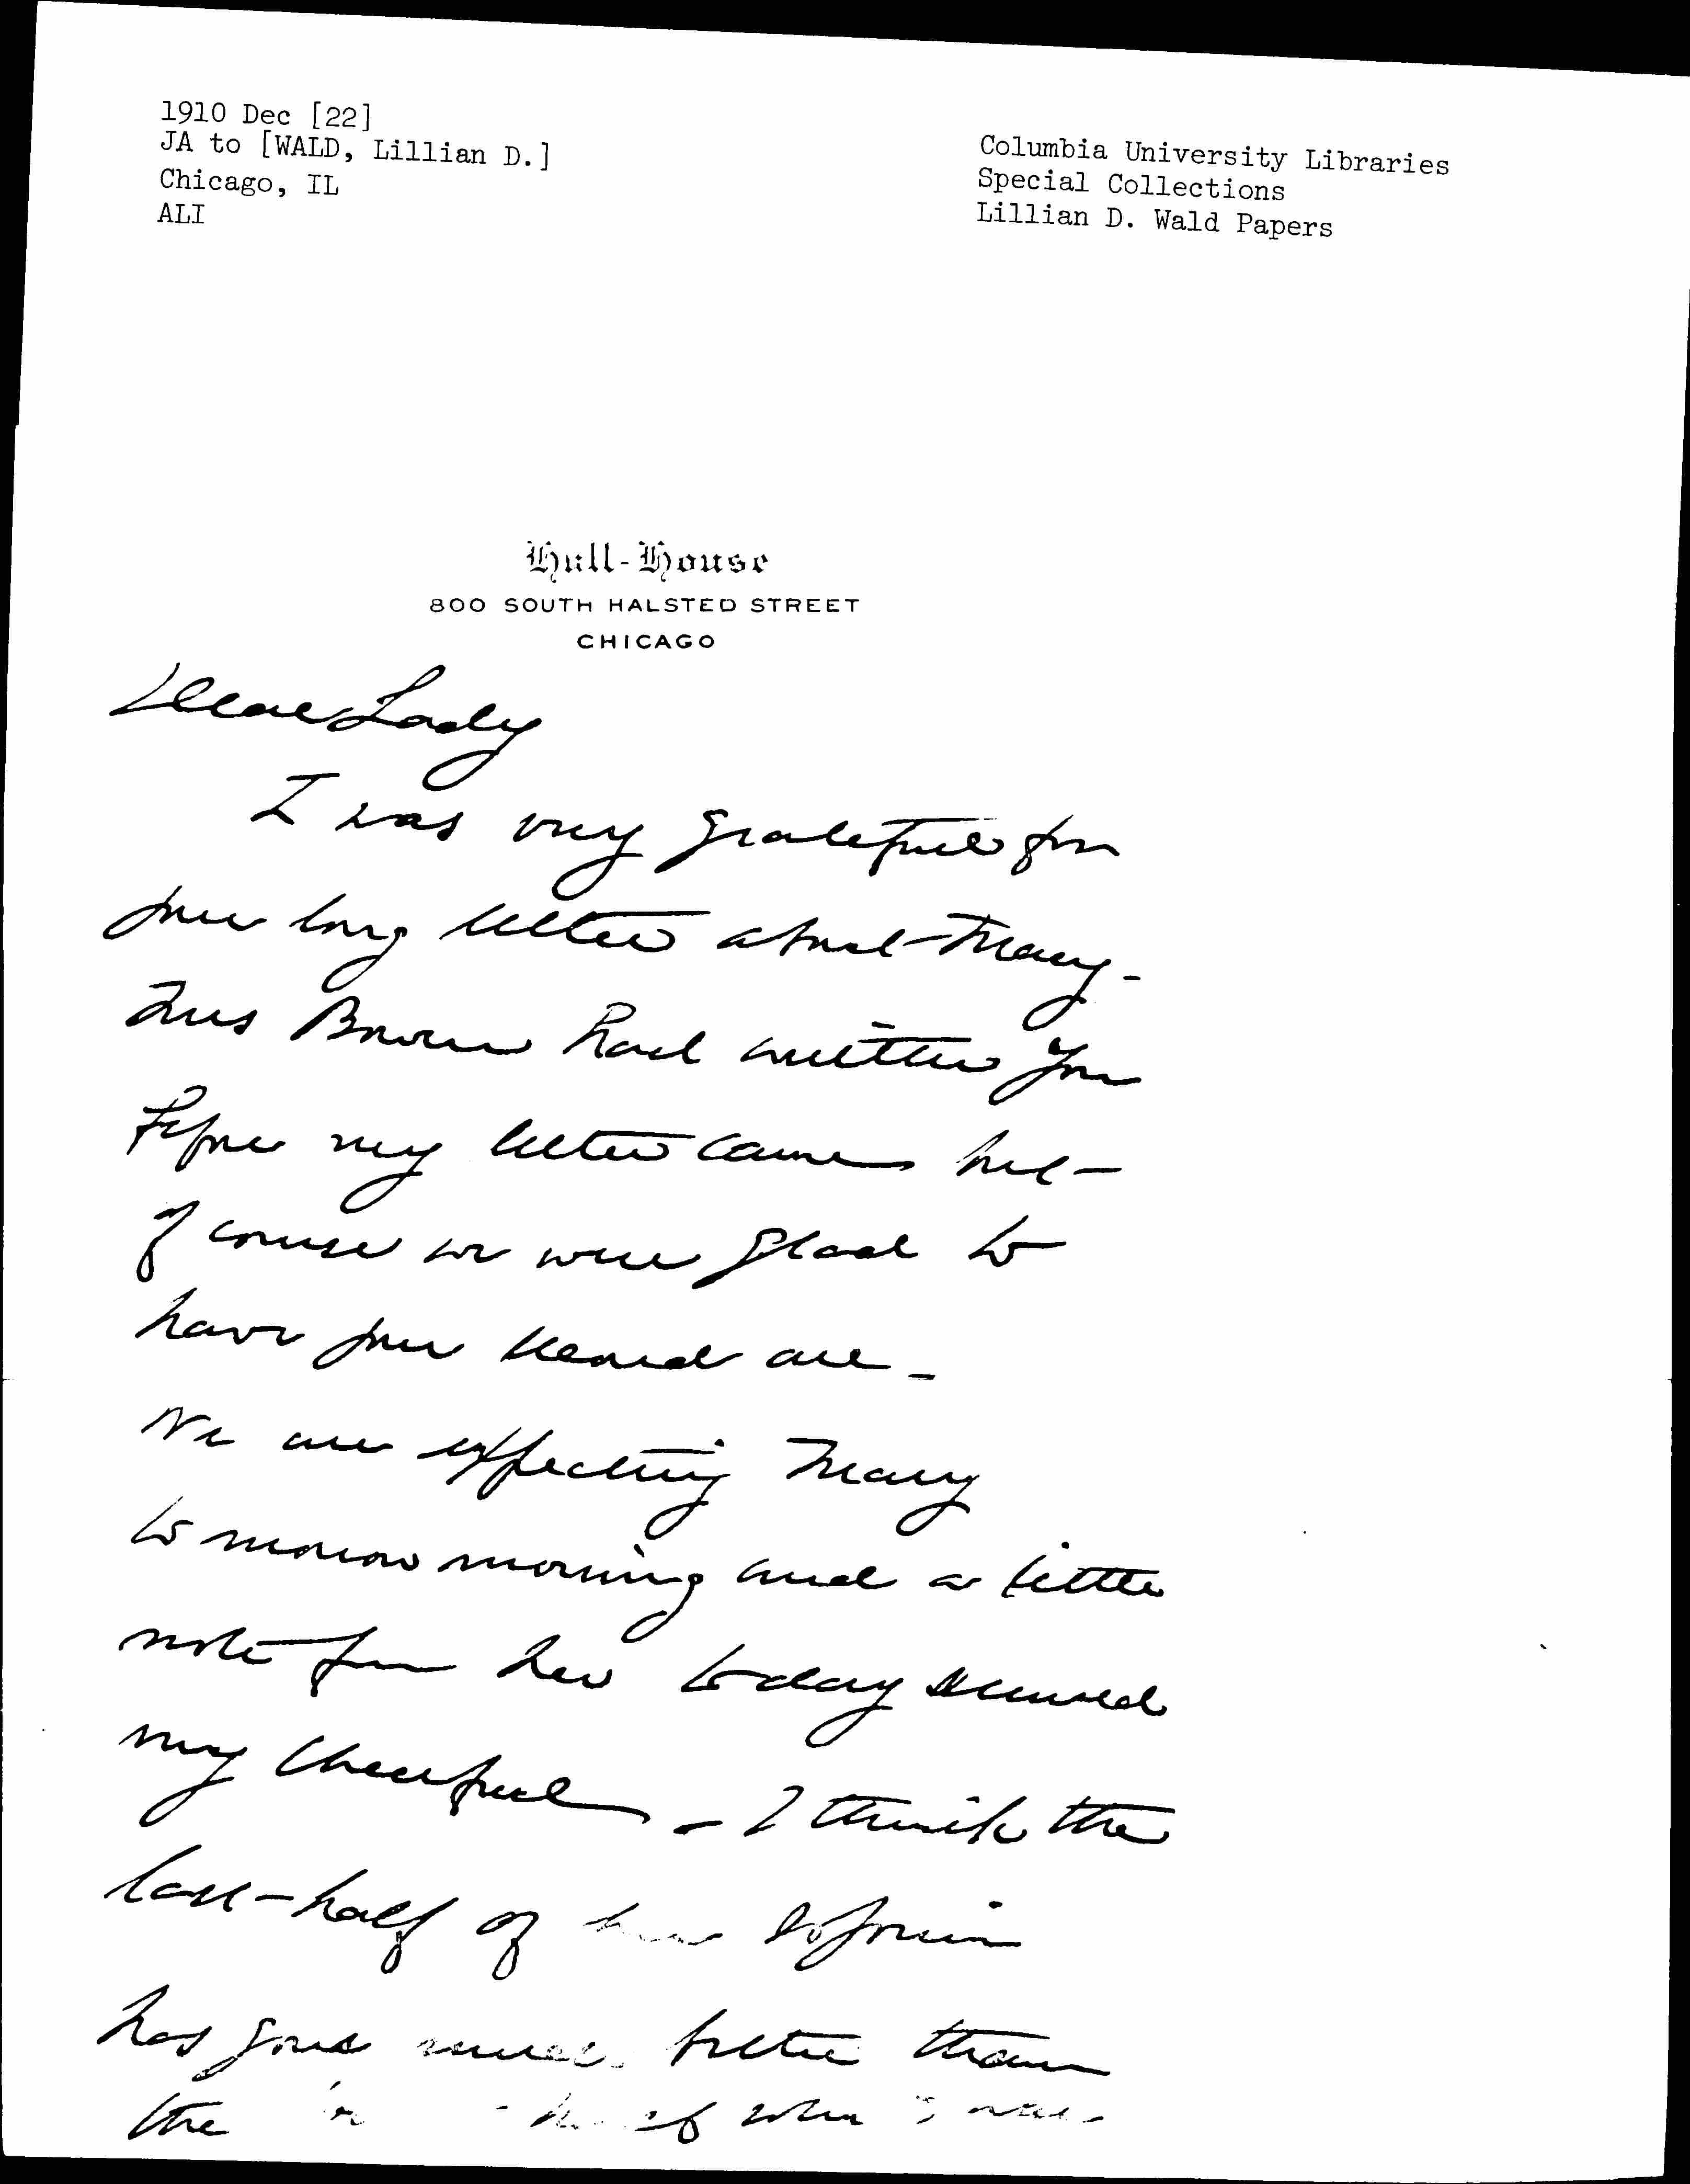 1910 Dec [22]
JA to [WALD, Lillian D.]
Chicago, IL
ALI
Columbia University Libraries
Special Collections
Lillian D. Wald Papers
Hull-House
800 SOUTH HALSTED STREET
CHICAGO
Dear Lady
I was very grateful for
your long letter about Mary -
Miss Brown had written you
before my letter came but -
of course we were glad to
have you all -
We are expecting Mary
to morrow morning and a little
note from her today seemed
very cheerful - I think the
last half of her sojourn
has gone much better than
the half when